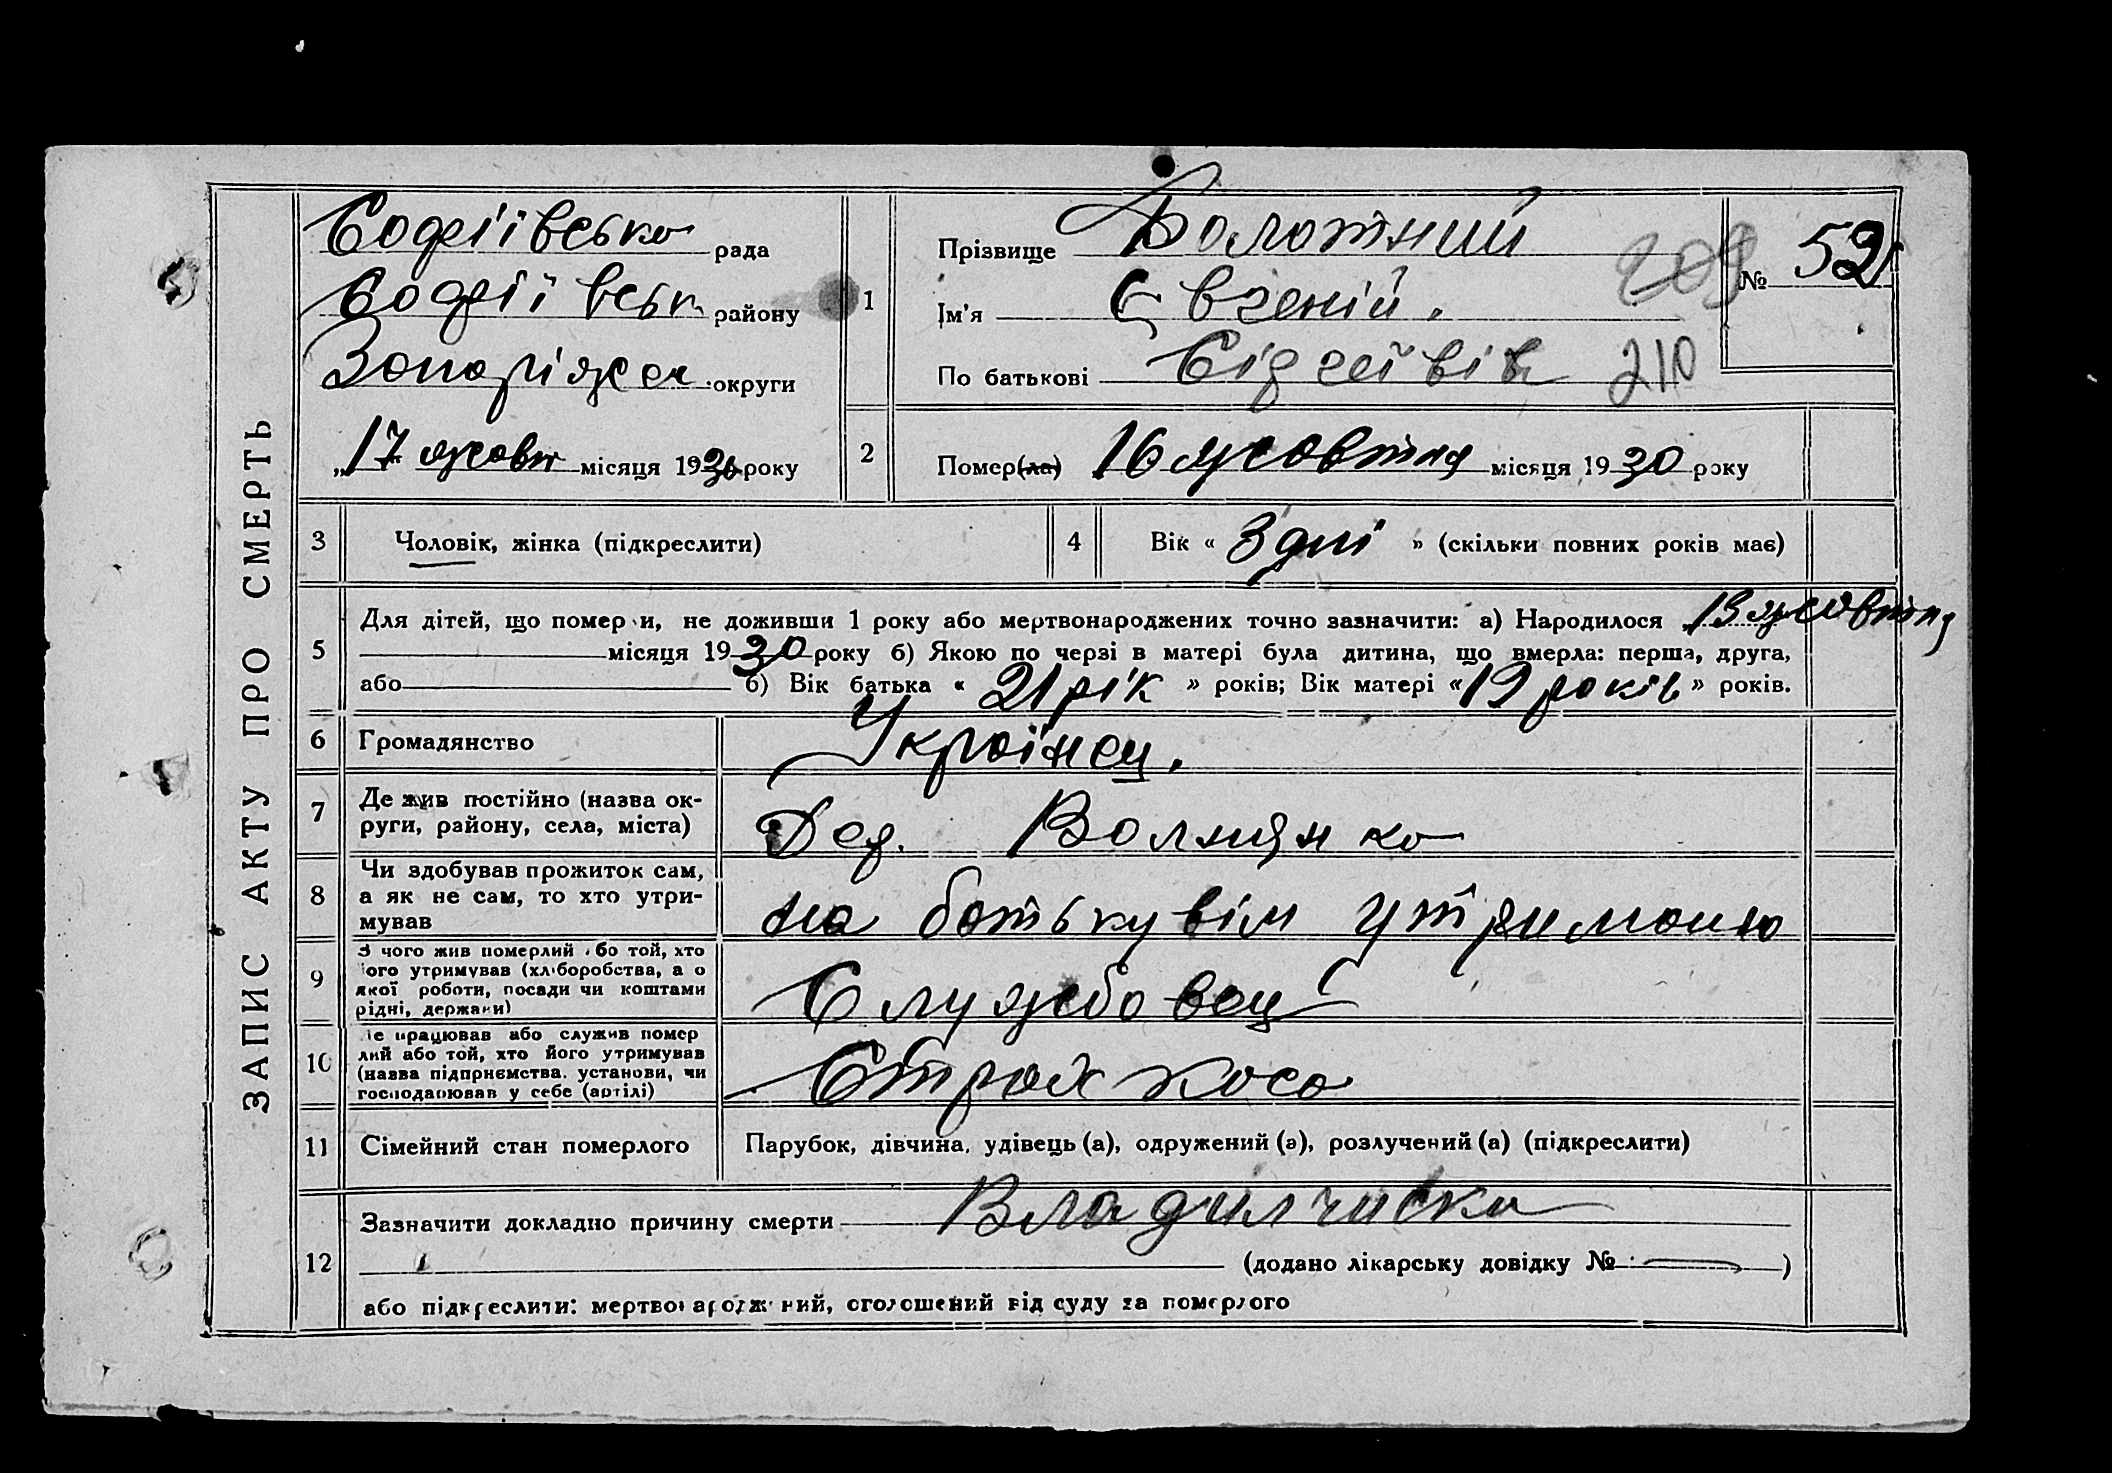 ЗАПИС АКТУ ПРО СМЕРТЬ
Софіївсько рада
Софіївськ району
Запоріжся округи
„17 жовт місяця 1930 року
1
Прізвище Болотний
Ім'я Євгеній.
По батькові
209
210
№ 52
2
Помер(ла) 16 жовтня місяця 1930 року
3
Чоловік, жінка (підкреслити)
4
Вік « 3 дні » (скільки повних років має)
5
Для дітей, що померли, не доживши 1 року або мертвонароджених точно зазначити: а) Народилося 13 жовтня
місяця 1930 року б) Якою по черзі в матері була дитина, що вмерла: перша, друга,
або б) Вік батька « 21 рік » років; Вік матері « 19 років » років.
6
Громадянство
Українец.
7
Де жив постійно (назва ок-
руги, району, села, міста)
8
Чи здобував прожиток сам,
а як не сам, то хто утри-
мував
на батькувім утриманю
9
З чого жив померлий або той, хто
його утримував (хліборобства, а о
якої роботи, посади чи коштами
рідні, держави)
Службовец
10
Де працював або служив помер
лий або той, хто його утримував
(назва підприємства, установи, чи
господарював у себе (артілі)
Страхкаса
11
Сімейний стан померлого
Парубок, дівчина, удівець (а), одружений (а), розлучений (а) (підкреслити)
12
Зазначити докладно причину смерти
(додано лікарську довідку № )
або підкреслити: мертвонароджений, оголошений від суду за померлого